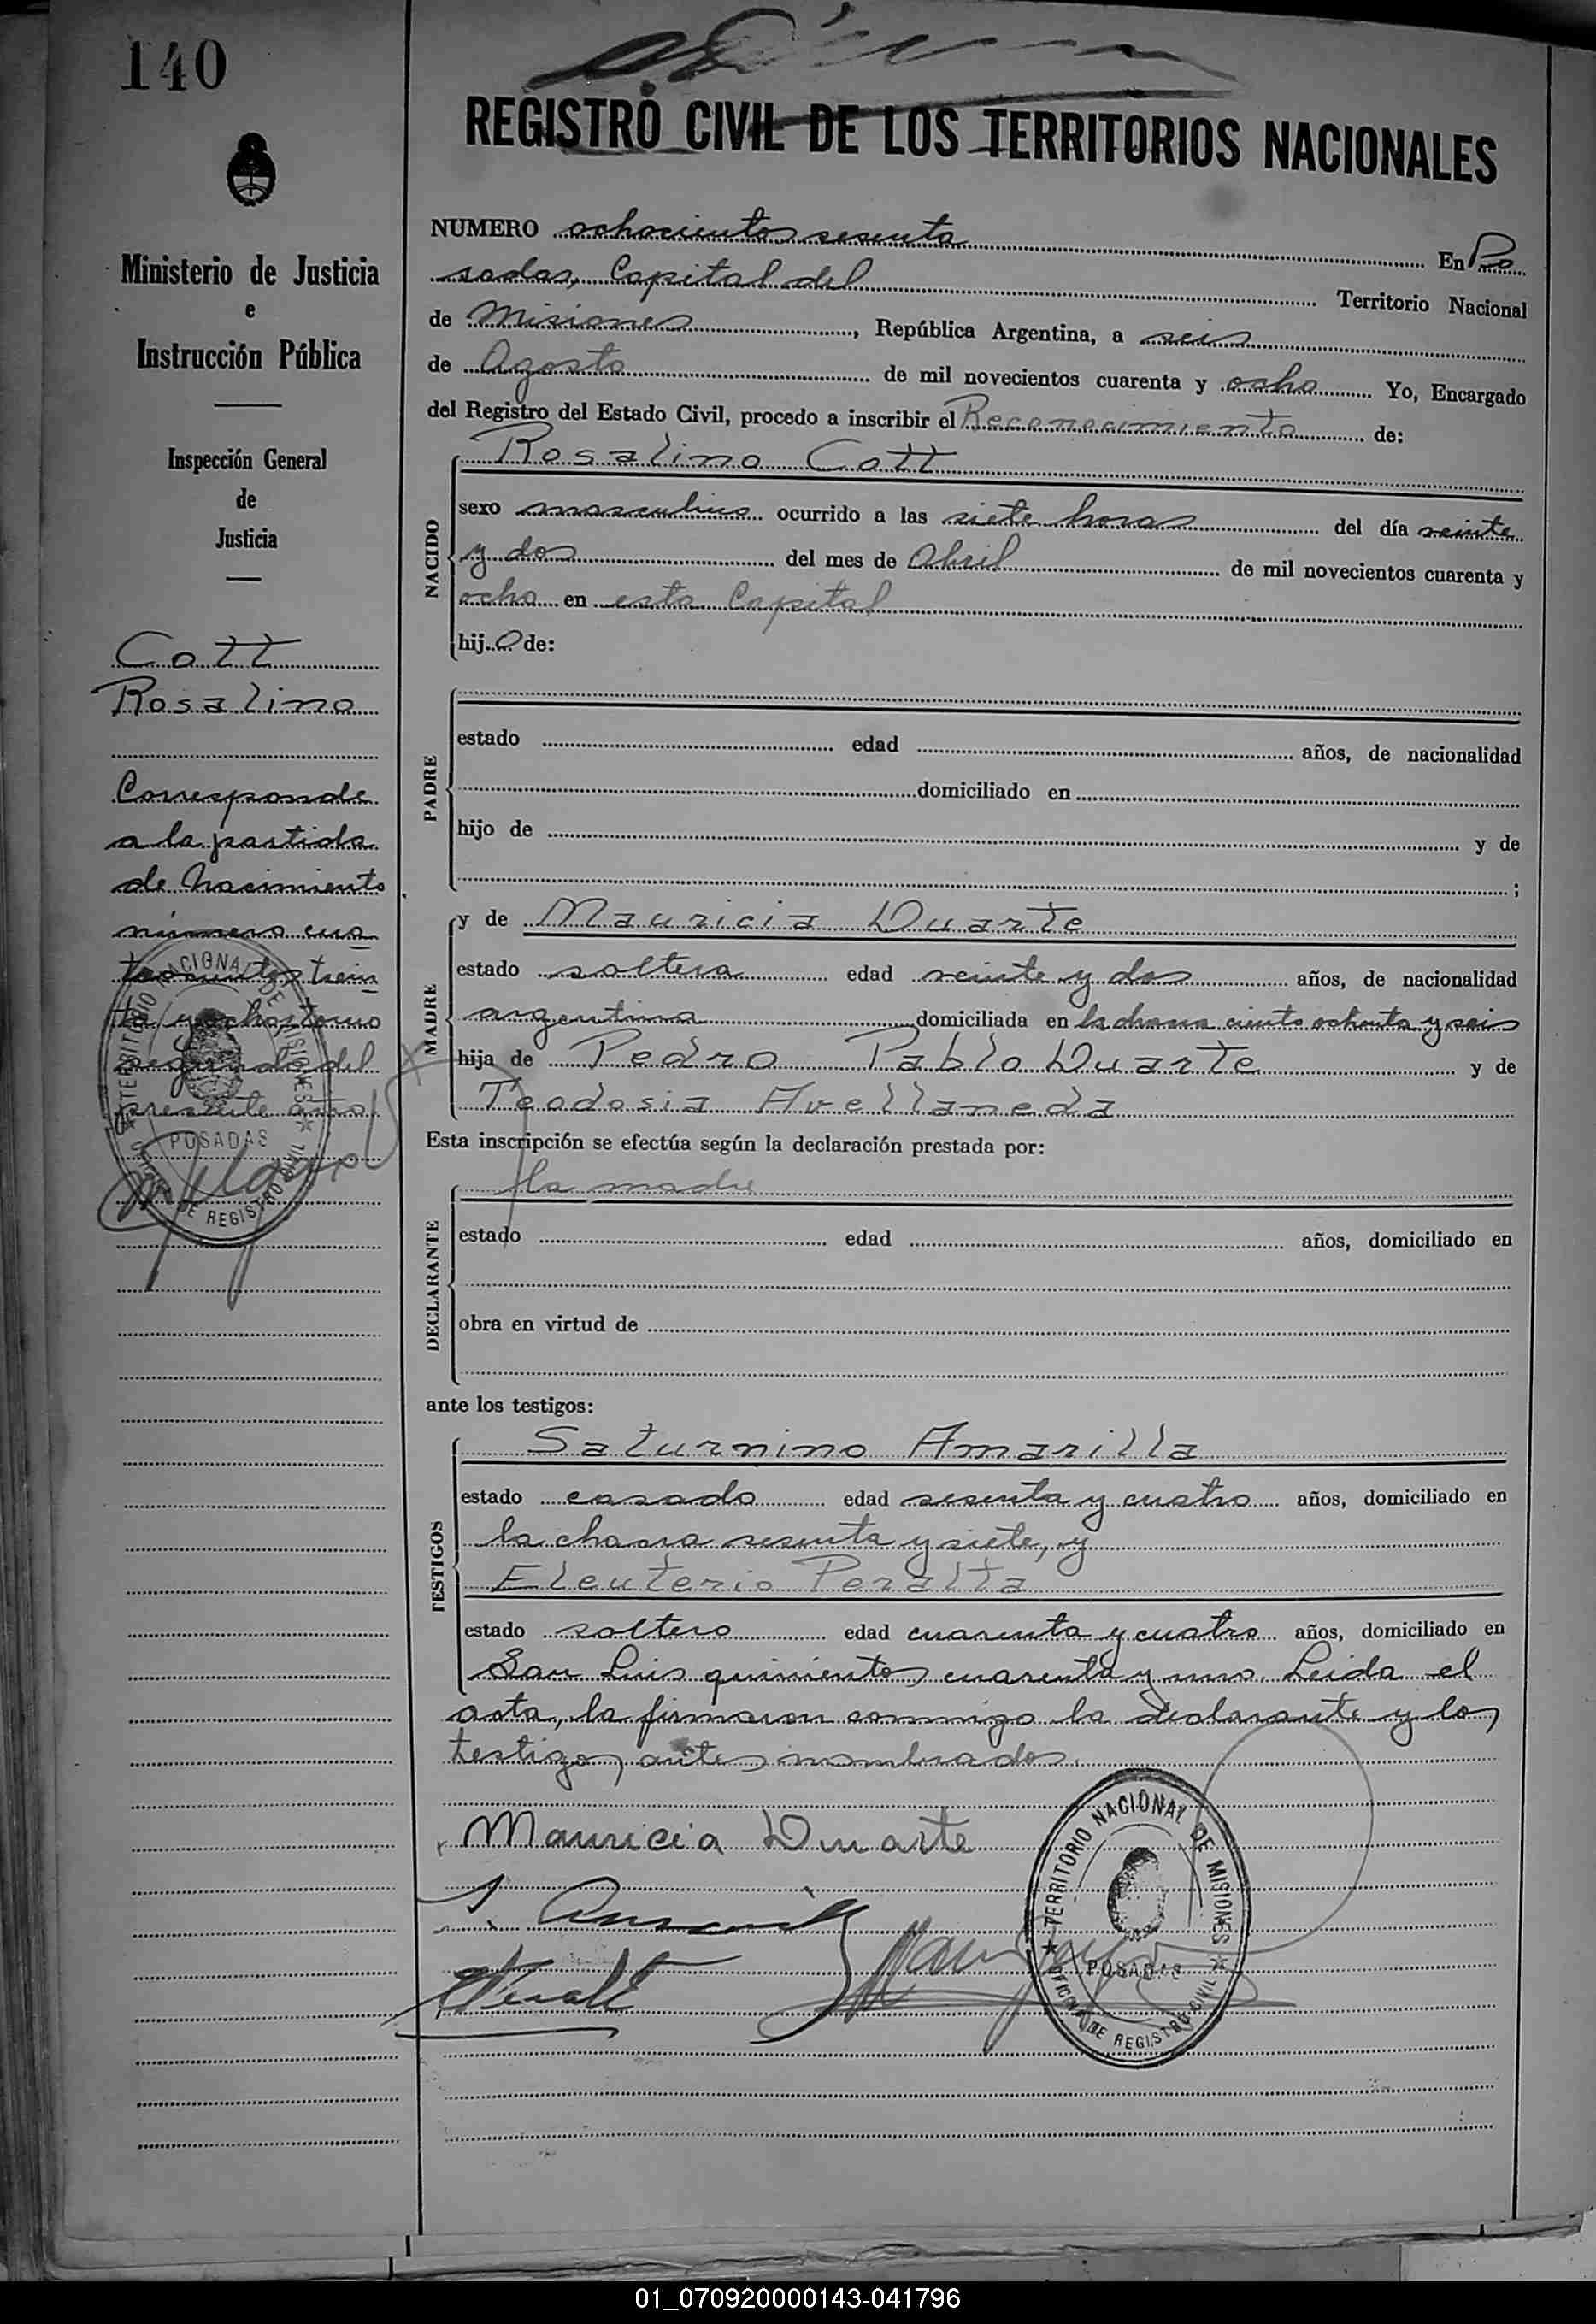 140
REGISTRO CIVIL DE LOS TERRITORIOS NACIONALES
Ministerio de Justicia
e
Instrucción Pública
Inspección General
de
Justicia
Cott
Rosalino
Corresponde
a la partida
de nacimiento
número cua
trocientos trein
ta y ocho tomo
segundo del
presente año
TERRITORIO NACIONAL DE MISIONES
POSADAS
OFICINA DE REGISTRO CIVIL
NUMERO ochocientos sesenta En Po
sadas, Capital del Territorio Nacional
de Misiones, República Argentina, a seis
de Agosto de mil novecientos cuarenta y ocho Yo, Encargado
del Registro del Estado Civil, procedo a inscribir el Reconocimiento de:
NACIDO
Rosalino Cott
sexo masculino ocurrido a las siete horas del día veinte
y dos del mes de Abril de mil novecientos cuarenta y
ocho en esta Capital
hijo de:
PADRE
estado edad años, de nacionalidad
domiciliado en
hijo de y de
;
MADRE
y de Mauricia Duarte
estado soltera edad veinte y dos años, de nacionalidad
argentina domiciliada en la chacra ciento ochenta y seis
hija de Pedro Pablo Duarte y de
Teodosia Avellaneda
Esta inscripción se efectúa según la declaración prestada por:
DECLARANTE
la madre
estado edad años, domiciliado en
obra en virtud de
ante los testigos:
TESTIGOS
Saturnino Amarilla
estado casado edad sesenta y cuatro años, domiciliado en
la chacra sesenta y siete, y
Eleuterio Peralta
estado soltero edad cuarenta y cuatro años, domiciliado en
San Luis quinientos cuarenta y uno. Leida el
acta, la firmaron conmigo la declarante y los
testigos antes nombrados.
Mauricia Duarte
TERRITORIO NACIONAL DE MISIONES
POSADAS
OFICINA DE REGISTRO CIVIL
01_070920000143-041796